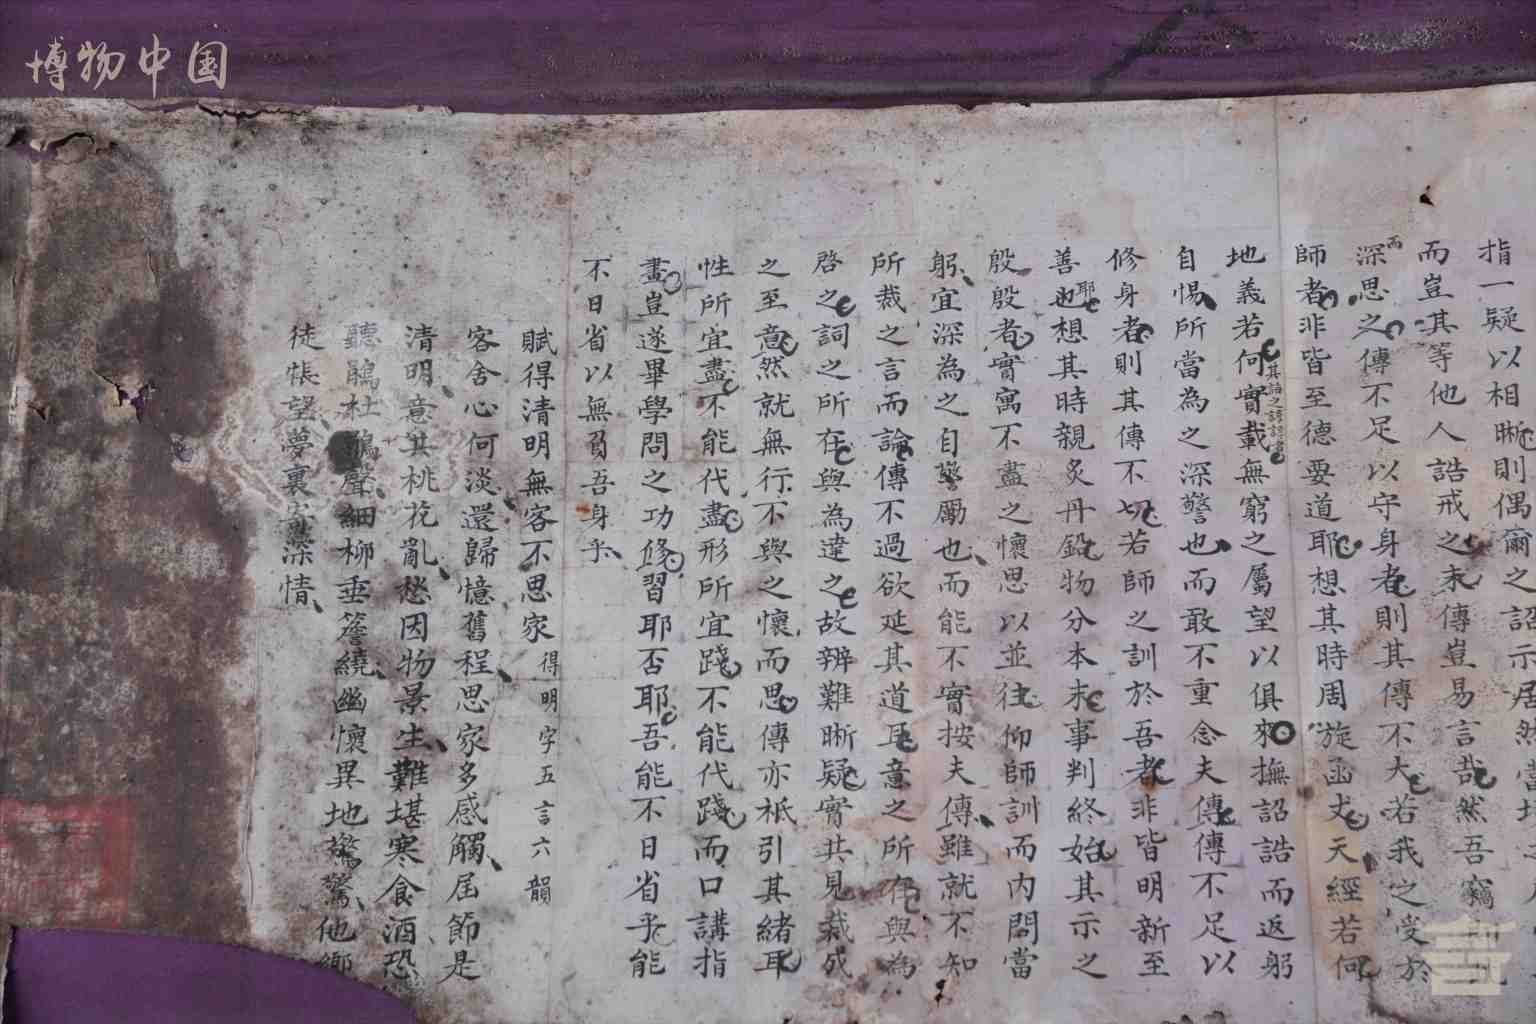 博物中国
指一疑以相晰則偶爾之詔示居然當
而豈其等他人誥戒之未傳豈易言哉然吾竊
深思之傳不足以守身者則其傳不大若我之受於
而
師者非皆至德要道耶想其時周旋函丈天經若何
地義若何實載無窮之屬望以俱來撫詔誥而返躬
自惕所當為之深警也而敢不重念夫傳傳不足以
修身者則其傳不切若師之訓於吾者非皆明新至
善也想其時親炙丹鉛物分本末事判終始其示之
耶
殷殷者實寓不盡之懷思以並往仰師訓而內問當
躬宜深為之自壆厲也而能不實按夫傳雖就不知
所裁之言而論傳不過欲延其道耳意之所存與為
啓之詞之所在與為達之故辨難晰疑實共見裁成
之至意然就無行不與之懷而思傳亦祇引其緒耳
性所宜盡不能代盡形所宜踐不能代踐而口講指
畫豈遂畢學問之功修習耶否耶吾能不日省乎能
不日省以無負吾身乎
賦得清明無客不思家 得明字五言六韻
客舍心何淡還歸憶舊程思家多感觸屆節是
清明意共桃花亂愁因物景生難堪寒食酒恐
聽鵑杜鵑聲細柳垂簷繞幽懷異地驚驚他鄉
徒悵望夢裏深情